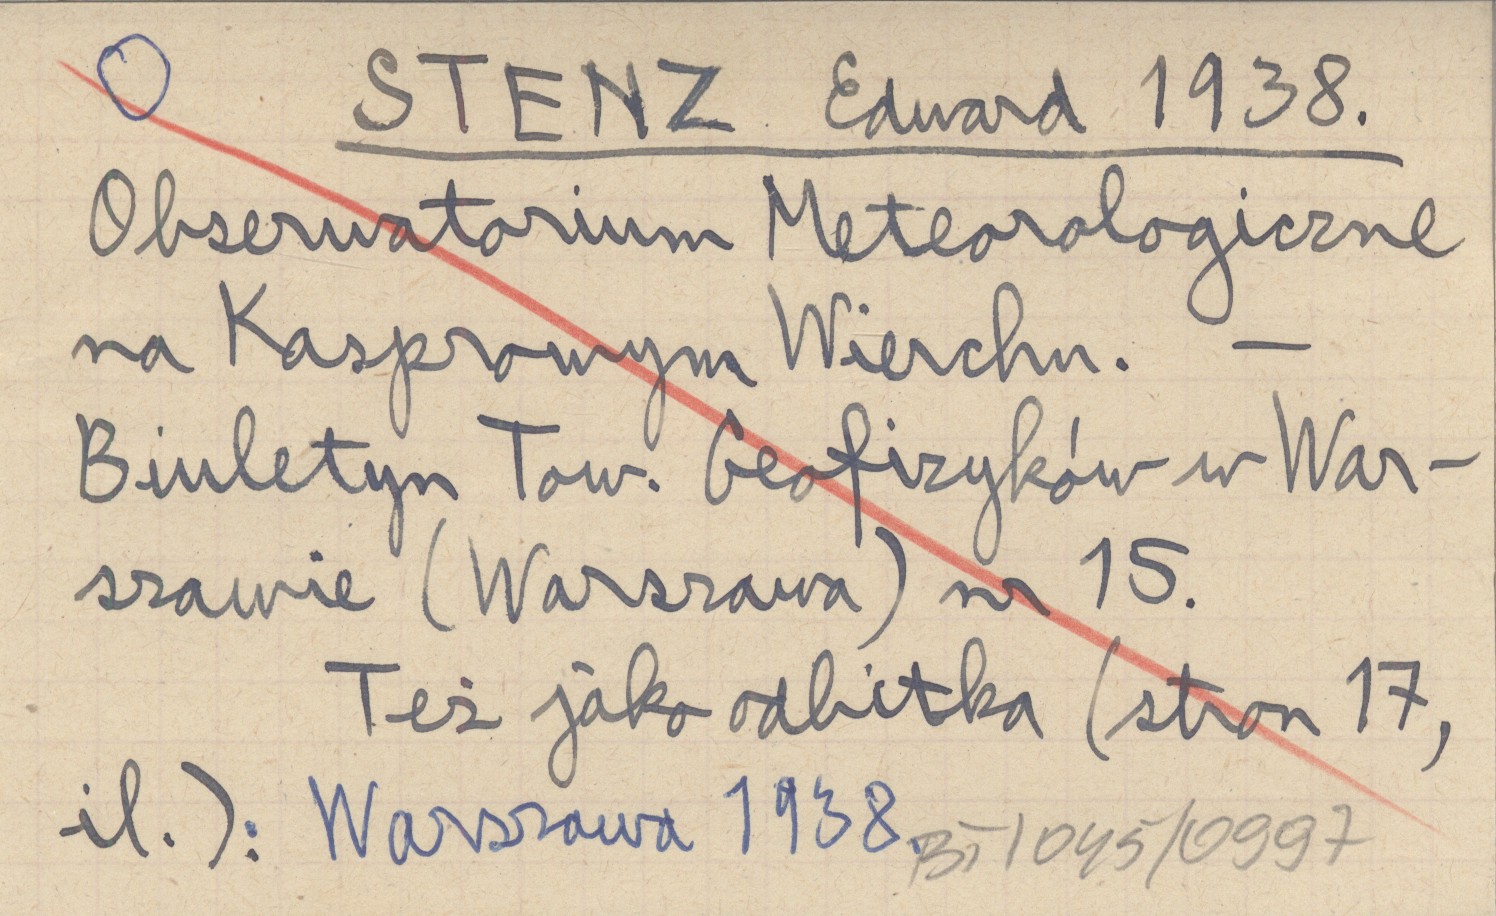 STENZ Edward 1938.
Obserwatorium Meteorologiczne
na Kasprowym Wierchu. —
Biuletyn Tow. Geofizyków w War-
szawie (Warszawa) nr 15.
Też jako odbitka (stron 17,
il.): Warszawa 1938.
BT-1045/0997